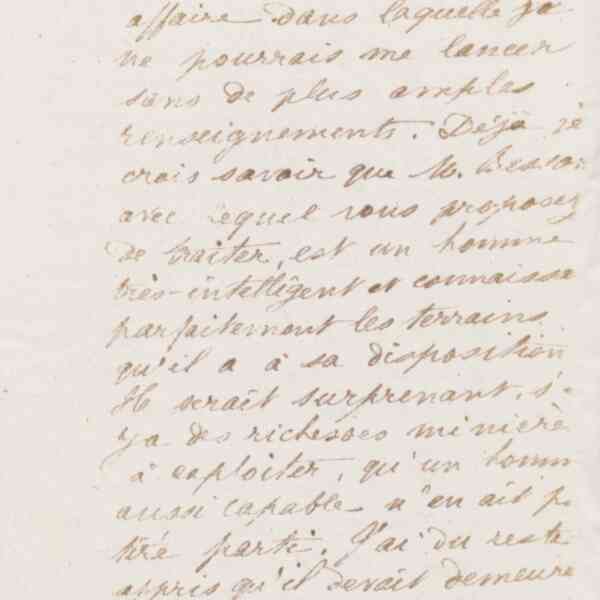 affaire dans laquelle je
ne pourrais me lancer
sans de plus amples
renseignements. Déjà je
crois savoir que M.
avec lequel vous proposez
de traiter, est un homme
très-intelligent et connaissa
parfaitement les terrains
qu'il a à sa disposition
Il serait surprenant, s'
y a des richesses minière
à exploiter, qu'un homm
aussi capable n'en ait p
tiré parti. J'ai du reste
appris qu'il devait demeure